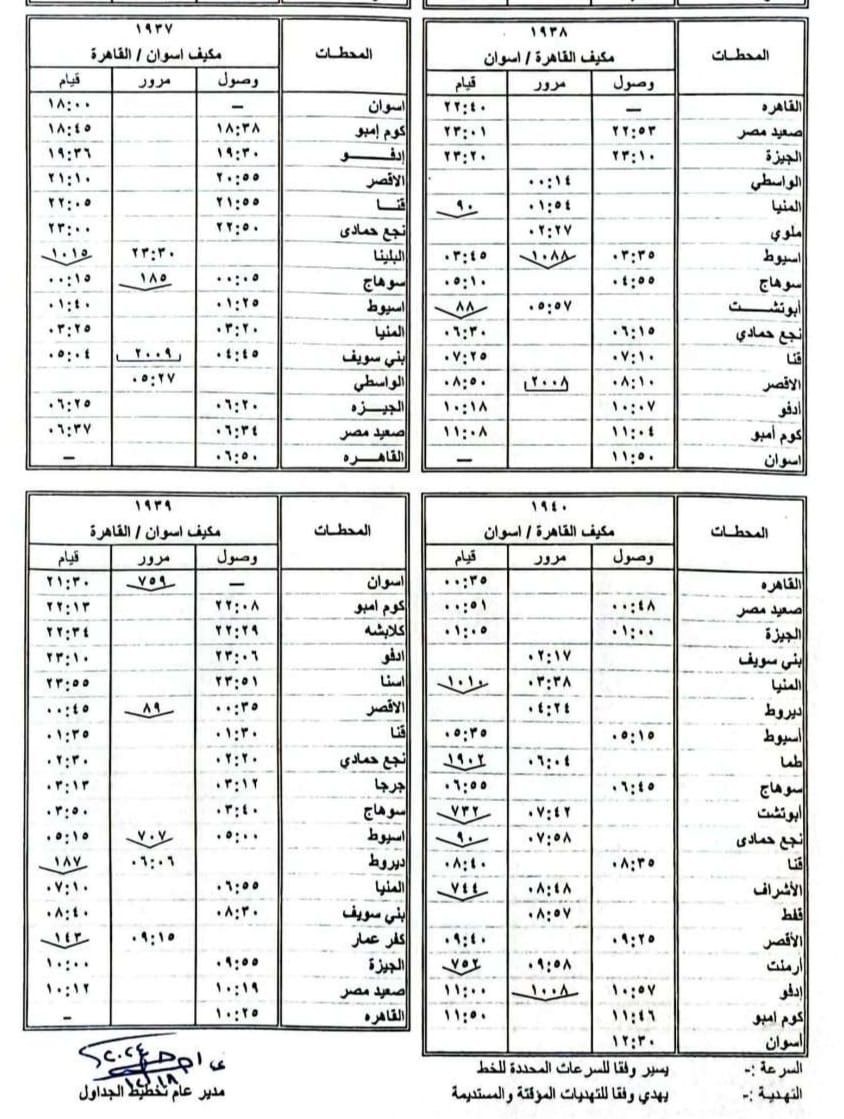 ١٩٣٨
المحطات
مكيف القاهرة / اسوان
وصول مرور قيام
القاهره — ٢٢:٤٠
صعيد مصر ٢٢:٥٣ ٢٣:٠١
الجيزة ٢٣:١٠ ٢٣:٢٠
الواسطي ٠٠:١٤
المنيا ٠١:٥٤ ٩٠
ملوي ٠٢:٢٧
اسيوط ٠٣:٣٥ ١٠٨٨ ٠٣:٤٥
سوهاج ٠٤:٥٥ ٠٥:١٠
أبوتشت ٠٥:٥٧ ٨٨
نجع حمادي ٠٦:١٥ ٠٦:٣٠
قنا ٠٧:١٠ ٠٧:٢٥
الاقصر ٠٨:١٠ ٢٠٠٨ ٠٨:٥٠
أدفو ١٠:٠٧ ١٠:١٨
كوم أمبو ١١:٠٤ ١١:٠٨
اسوان ١١:٥٠ —
١٩٣٧
المحطات
مكيف اسوان / القاهرة
وصول مرور قيام
اسوان — ١٨:٠٠
كوم إمبو ١٨:٣٨ ١٨:٤٥
إدفو ١٩:٣٠ ١٩:٣٦
الاقصر ٢٠:٥٥ ٢١:١٠
قنا ٢١:٥٥ ٢٢:٠٥
نجع حمادى ٢٢:٥٠ ٢٣:٠٠
البلينا ٢٣:٣٠ ١٠١٥
سوهاج ٠٠:٠٥ ١٨٥ ٠٠:١٥
اسيوط ٠١:٢٥ ٠١:٤٠
المنيا ٠٣:٢٠ ٠٣:٢٥
بني سويف ٠٤:٤٥ ٢٠٠٩ ٠٥:٠٤
الواسطي ٠٥:٢٧
الجيزه ٠٦:٢٠ ٠٦:٢٥
صعيد مصر ٠٦:٣٤ ٠٦:٣٧
القاهره ٠٦:٥٠ —
١٩٤٠
المحطات
مكيف القاهرة / اسوان
وصول مرور قيام
القاهره ٠٠:٣٥
صعيد مصر ٠٠:٤٨ ٠٠:٥١
الجيزة ٠١:٠٠ ٠١:٠٥
بني سويف ٠٢:١٧
المنيا ٠٣:٣٨ ١٠١٠
ديروط ٠٤:٢٤
أسيوط ٠٥:١٥ ٠٥:٣٥
طما ٠٦:٠٤ ١٩٠٢
سوهاج ٠٦:٤٥ ٠٦:٥٥
أبوتشت ٠٧:٤٢ ٧٣٢
نجع حمادى ٠٧:٥٨ ٩٠
قنا ٠٨:٣٥ ٠٨:٤٠
الأشراف ٠٨:٤٨ ٧٤٤
قفط ٠٨:٥٧
الأقصر ٠٩:٢٥ ٠٩:٤٠
أرمنت ٠٩:٥٨ ٧٥٢
إدفو ١٠:٥٧ ١٠٠٨ ١١:٠٠
كوم إمبو ١١:٤٦ ١١:٥٠
أسوان ١٢:٣٠
١٩٣٩
المحطات
مكيف اسوان / القاهرة
وصول مرور قيام
اسوان — ٧٥٩ ٢١:٣٠
كوم امبو ٢٢:٠٨ ٢٢:١٣
كلابشه ٢٢:٢٩ ٢٢:٣٤
ادفو ٢٣:٠٦ ٢٣:١٠
اسنا ٢٣:٥١ ٢٣:٥٥
الأقصر ٠٠:٣٥ ٨٩ ٠٠:٤٥
قنا ٠١:٣٠ ٠١:٣٥
نجع حمادي ٠٢:٢٠ ٠٢:٣٠
جرجا ٠٣:١٢ ٠٣:١٣
سوهاج ٠٣:٤٠ ٠٣:٥٠
اسيوط ٠٥:٠٠ ٧٠٧ ٠٥:١٥
ديروط ٠٦:٠٦ ١٨٧
المنيا ٠٦:٥٥ ٠٧:١٠
بني سويف ٠٨:٣٠ ٠٨:٤٠
كفر عمار ٠٩:١٥ ١٤٣
الجيزة ٠٩:٥٥ ١٠:٠٠
صعيد مصر ١٠:١٩ ١٠:١٢
القاهره ١٠:٢٥ —
السرعة :- يسير وفقا للسرعات المحددة للخط
التهدية :- يهدي وفقا للتهديات المؤقتة والمستديمة
مدير عام تخطيط الجداول